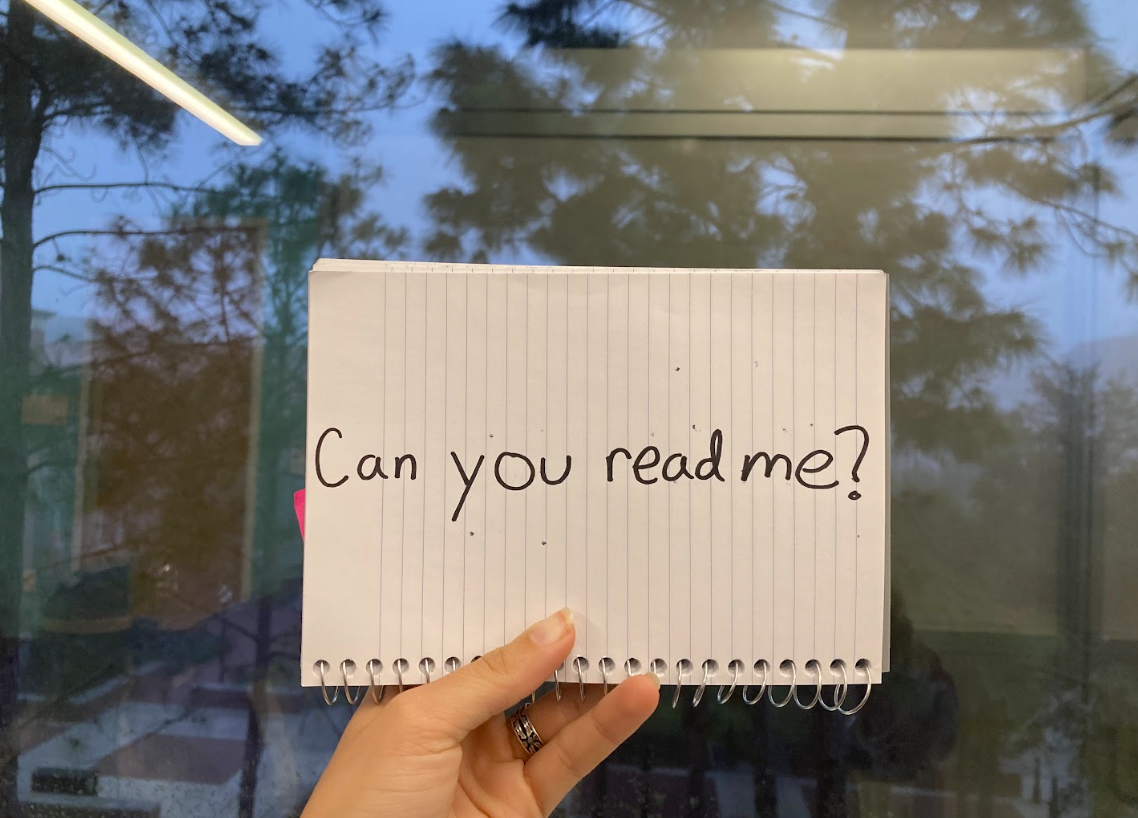 Can you read me?